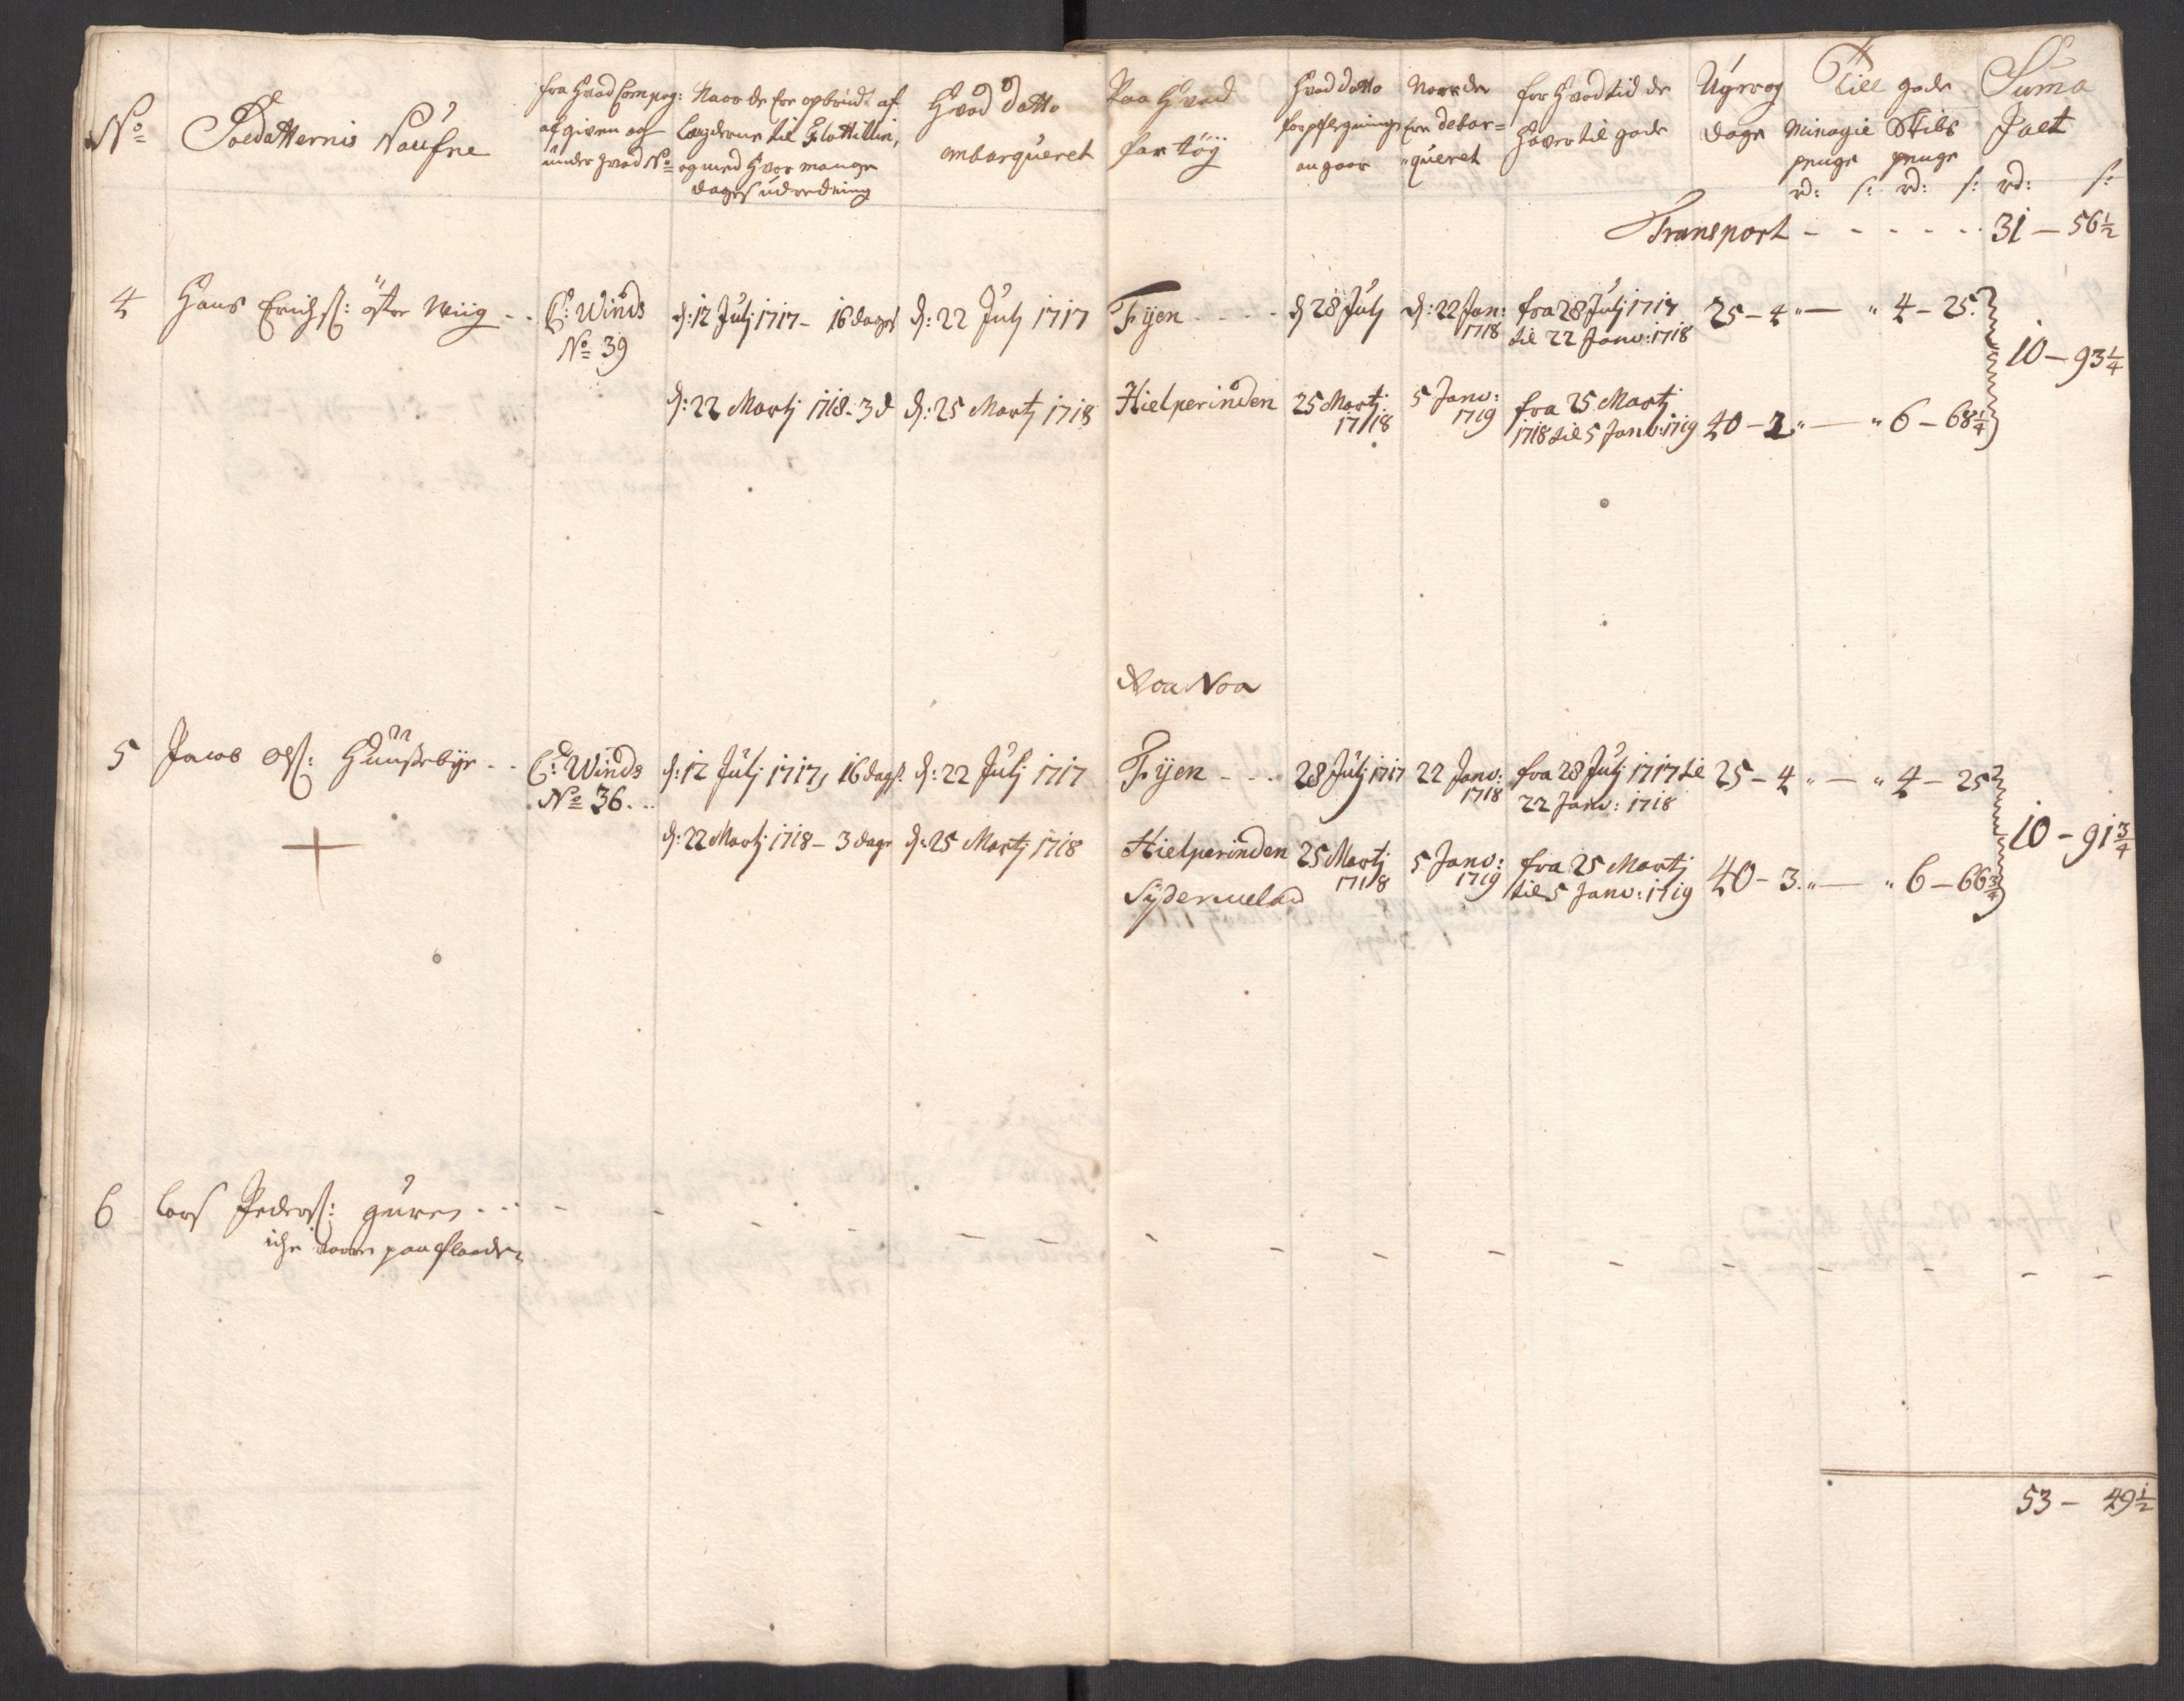 No
Soldatternis Naufne
fra hvad Compag:
afgiven og
under hvad No
Naar de ere opbrudt af
lægderne til Flottillin,
og med hvor mange
dages udredning
Hvad datto
embarqueret
Paa Hvad
fartöÿ
hvad datto
forpflegnings
angaar
Naar de
ere debar=
queret
for hvad tid de
haver til gode
Uger og
dage
Till gode
Minagie
penge
rd: s:
Skibs
penge
rd: s:
Suma
Jalt
rd: s:
Transport - - - - - 31 - 56½
4 Hans Erichs: öster Wiig - -
C: Winds
No 39
d: 12 Julj 1717 - 16 dages
d: 22 Julj 1717
Fÿen - - - -
d 28 Julj
d: 22 Jan:
1718
fra 28 Julj 1717
til 22 Janv: 1718
25 - 4 " — " 4 - 25
10 - 93¼
d: 22 Martj 1718 - 3 d
d: 25 Martj 1718
Hielperinden
25 Martj
1718
5 Janv:
1719
fra 25 Martj
1718 til 5 Janv: 1719
40 - 2 " — " 6 - 68¼
Noa Noa
5 Jacob Ols: Hunsebÿe - -
C: Winds
No 36 - -
d: 12 Julj 1717, 16 dags
d: 22 Julj 1717
Fÿen - - -
28 Julj 1717
22 Janv:
1718
fra 28 Julj 1717 til
22 Janv: 1718
25 - 4 " — " 4 - 25
10 - 91¾
d: 22 Martj 1718 - 3 dage
d: 25 Martj 1718
Hielperinden
25 Martj
1718
5 Janv:
1719
fra 25 Martj
til 5 Janv: 1719
40 - 3 " — " 6 - 66¾
6 Lars Peders: guren - - -
iche paa flaaden
53 - 49½